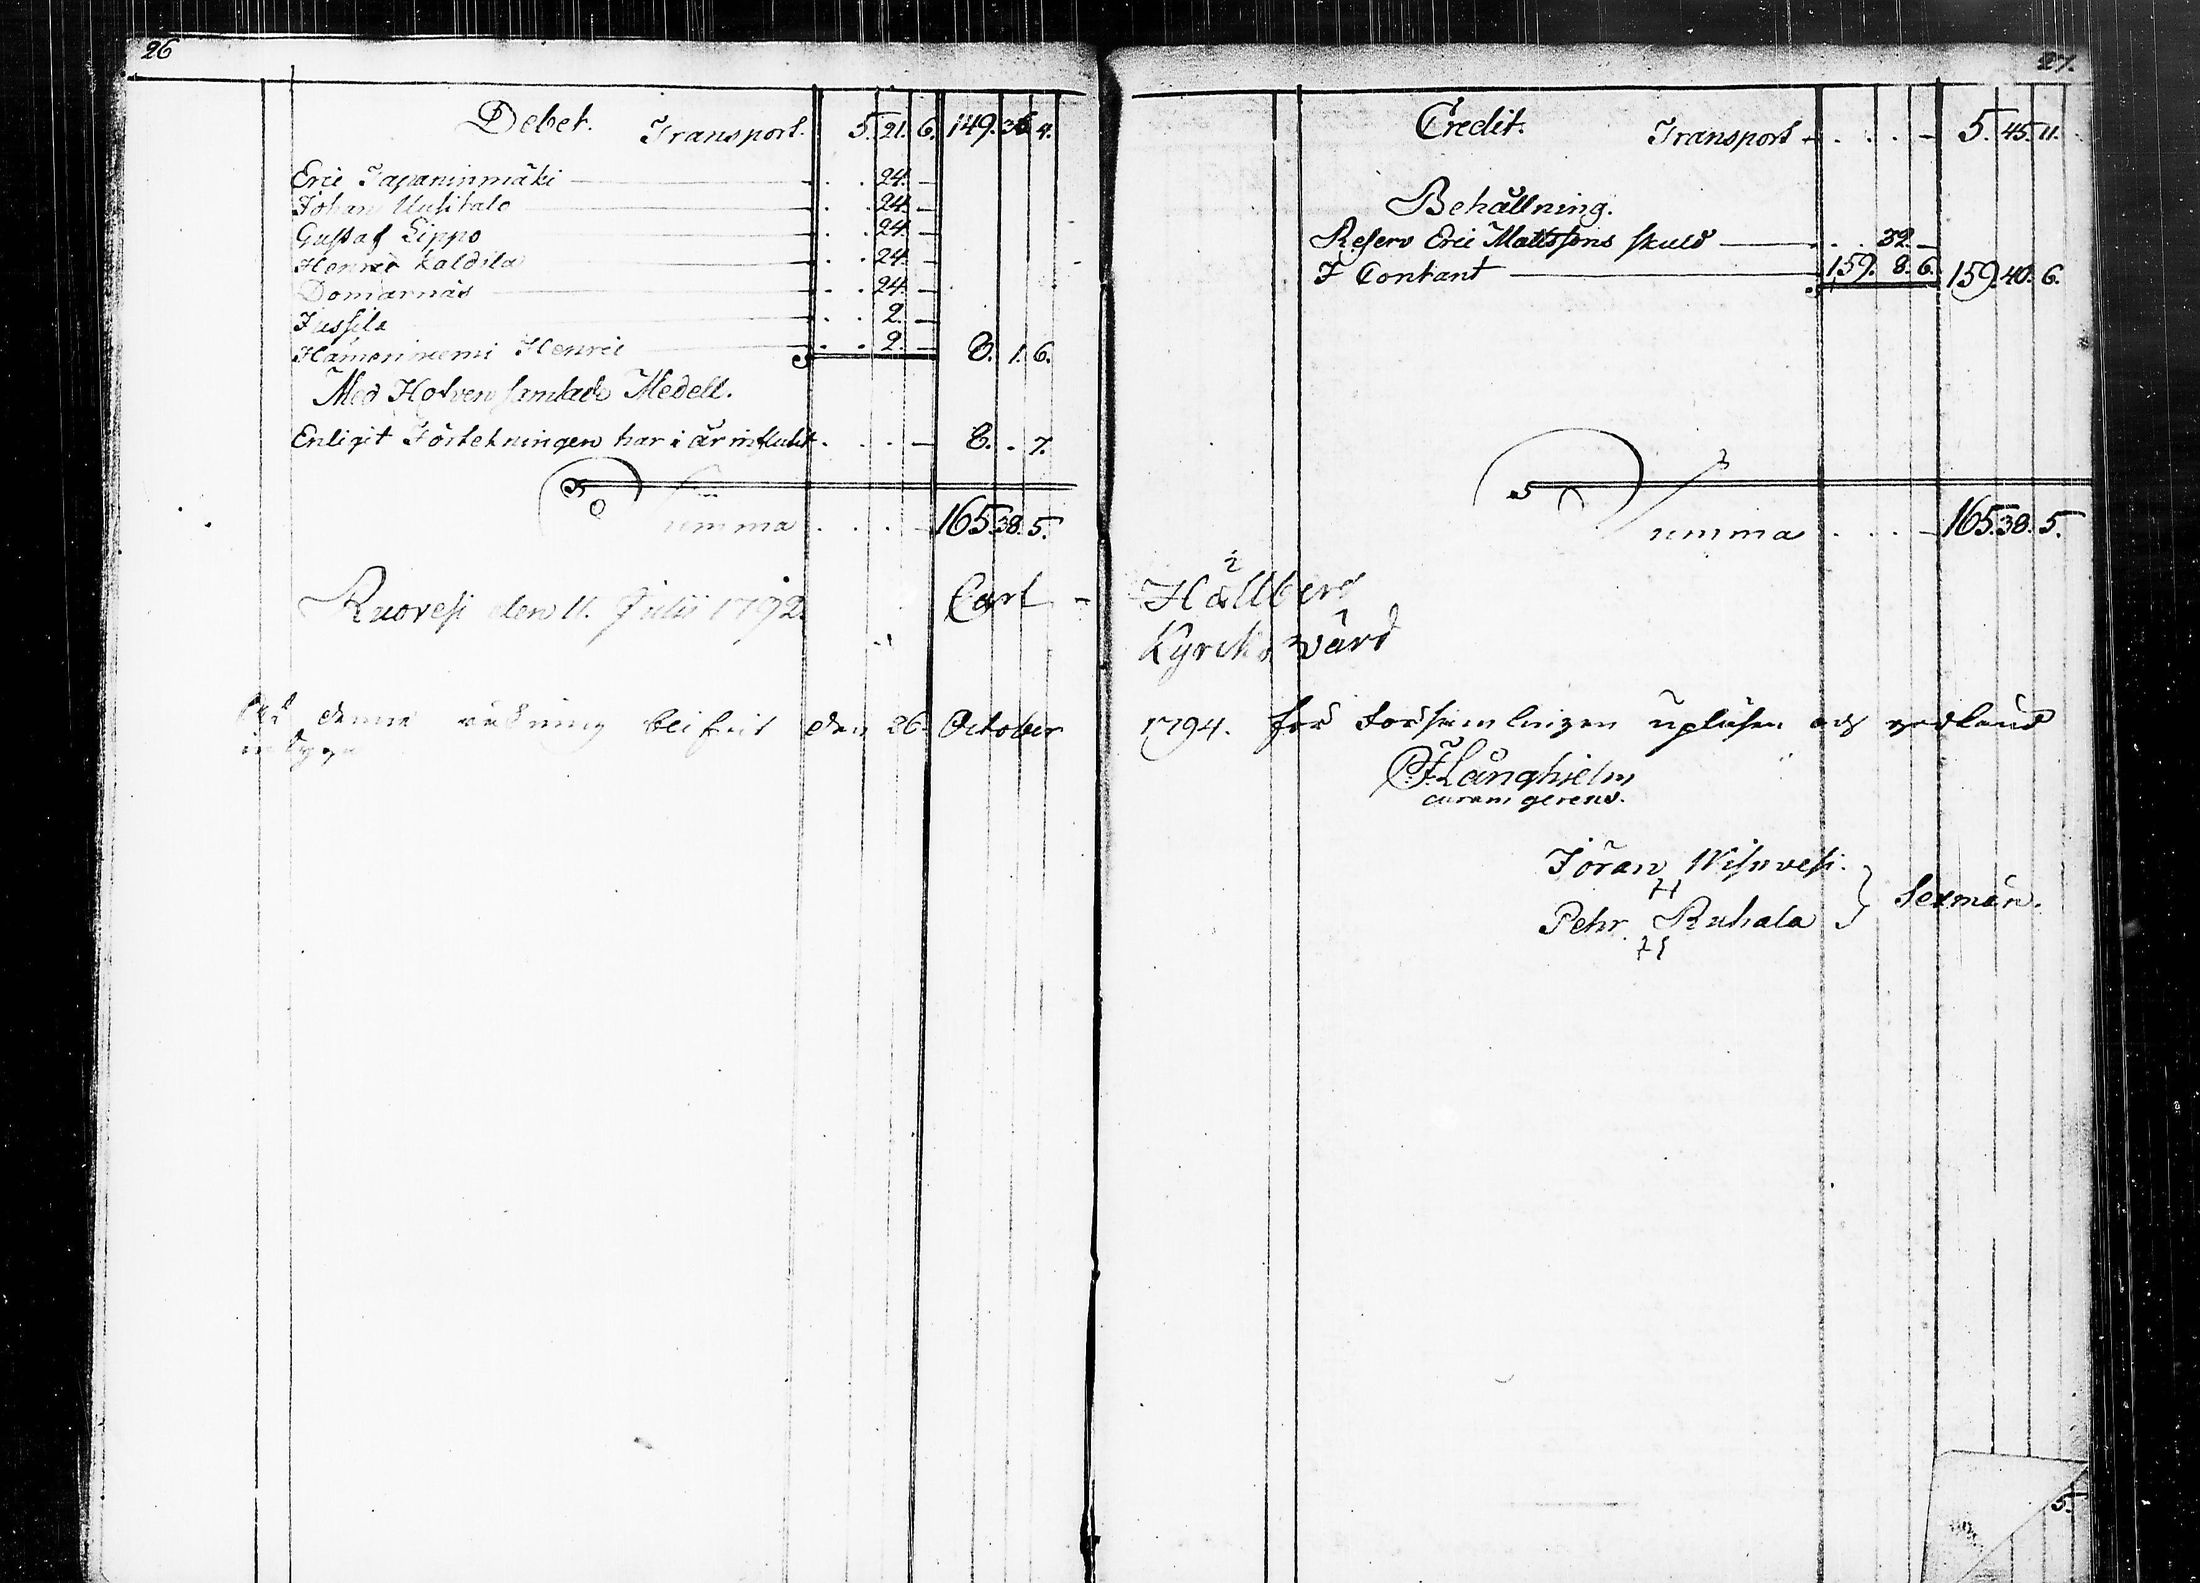 26
Debet. Transport. 5. 21. 6. 149. 36. 4.
Eric Tapaninmäki . . 24. —
Johan Uusitalo . . 24. —
Gustaf Lippo . . 24. —
Henric Kaldila . . 24. —
Domarnäs . . 24. —
Jussila . . 2. —
Hämeniemi Henric . . 2. — 8. 1. 6.
Med Hofven samlade Medell.
Enligit Förtekningen har i år influtit . . . — 8. . 7.
Summa . . . — 165. 38. 5.
Ruovesi den 11. Julii 1792.
Carl
denna räkning blifvit den 26. October
27.
Credit. Transport . . . — 5. 45. 11.
Behållning.
Reserv Eric Mattssons skuld . . 32. —
I Contant 159. 8. 6. 159. 40. 6.
Summa . . . — 165. 38. 5.
Hällberg
Kyrckovärd
1794. för Församlingen upläsen och
F Långhielm
curam gerens.
Jöran Wisuvesi.
Pehr Ruhala } Sexmän.
5.